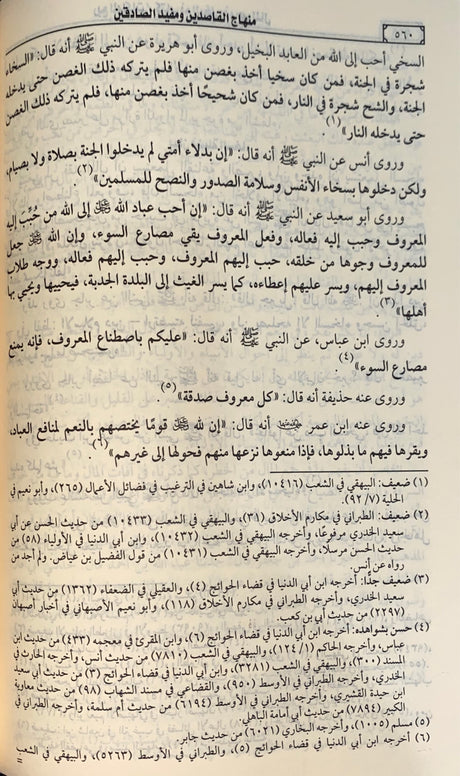 منهاج القاصدين ومفيد الصادقين
٥٦٠
السخي أحب إلى الله من العابد البخيل، وروى أبو هريرة عن النبي ﷺ أنه قال: «السخاء
شجرة في الجنة، فمن كان سخيا أخذ بغصن منها فلم يتركه ذلك الغصن حتى يدخله
الجنة، والشح شجرة في النار، فمن كان شحيحًا أخذ بغصن منها، فلم يتركه ذلك الغصن
حتى يدخله النار»(١).
وروى أنس عن النبي ﷺ أنه قال: «إن بدلاء أمتي لم يدخلوا الجنة بصلاة ولا بصيام،
ولكن دخلوها بسخاء الأنفس وسلامة الصدور والنصح للمسلمين»(٢).
وروى أبو سعيد عن النبي ﷺ أنه قال: «إن أحب عباد الله ﷻ إلى الله من حُبِّبَ إليه
المعروف وحبب إليه فعاله، وفعل المعروف يقي مصارع السوء، وإن الله ﷻ جعل
للمعروف وجوها من خلقه، حبب إليهم المعروف، وحبب إليهم فعاله، ووجه طلاب
المعروف إليهم، ويسر عليهم إعطاءه، كما يسر الغيث إلى البلدة الجدبة، فيحييها ويحيي بها
أهلها»(٣).
وروى ابن عباس، عن النبي ﷺ أنه قال: «عليكم باصطناع المعروف، فإنه يمنع
مصارع السوء»(٤).
وروى عنه حذيفة أنه قال: «كل معروف صدقة»(٥).
وروى عنه ابن عمر أنه قال: «إن لله ﷻ قومًا يختصهم بالنعم لمنافع العباد،
ويقرها فيهم ما بذلوها، فإذا منعوها نزعها منهم فحولها إلى غيرهم»(٦).
(١) ضعيف: البيهقي في الشعب (١٠٤١٦)، وابن شاهين في الترغيب في فضائل الأعمال (٢٦٥)، وأبو نعيم في
الحلية (٧/ ٩٢).
(٢) ضعيف: الطبراني في مكارم الأخلاق (٣١)، والبيهقي في الشعب (١٠٤٣٣) من حديث الحسن عن أبي
سعيد الخدري مرفوعًا، وأخرجه البيهقي في الشعب (١٠٤٣٢)، وابن أبي الدنيا في الأولياء (٥٨) من
حديث الحسن مرسلًا، وأخرجه البيهقي في الشعب (١٠٤٣١) من قول الفضيل بن عياض. ولم أجد من
رواه عن أنس.
(٣) ضعيف جدًّا: أخرجه ابن أبي الدنيا في قضاء الحوائج (٤)، والعقيلي في الضعفاء (١٣٦٢) من حديث أبي
سعيد الخدري، وأخرجه الطبراني في مكارم الأخلاق (١١٨)، وأبو نعيم الأصبهاني في أخبار أصبهان
(٢٢٩٧) من حديث أبي بن كعب.
(٤) حسن بشواهده: أخرجه ابن أبي الدنيا في قضاء الحوائج (٦)، وابن المقرئ في معجمه (٤٣٣) من حديث ابن
عباس، وأخرجه الحاكم (١/ ١٢٤)، والبيهقي في الشعب (٧٨١٠) من حديث أنس، وأخرجه الحارث في
المسند (٣٠٠)، والبيهقي في الشعب (٣٢٨١)، وابن أبي الدنيا في قضاء الحوائج (٣) من حديث أبي سعيد
الخدري، وأخرجه الطبراني في الأوسط (٩٥٠)، والقضاعي في مسند الشهاب (٩٨) من حديث معاوية
ابن حيدة القشيري، وأخرجه الطبراني في الأوسط (٦١٩٤) من حديث أم سلمة، وأخرجه الطبراني في
الكبير (٧٨٩٤) من حديث أبي أمامة الباهلي.
(٥) مسلم (١٠٠٥)، وأخرجه البخاري (٦٠٢١) من حديث جابر.
(٦) أخرجه ابن أبي الدنيا في قضاء الحوائج (٥)، والطبراني في الأوسط (٥٢٦٣)، والبيهقي في الشعب
=